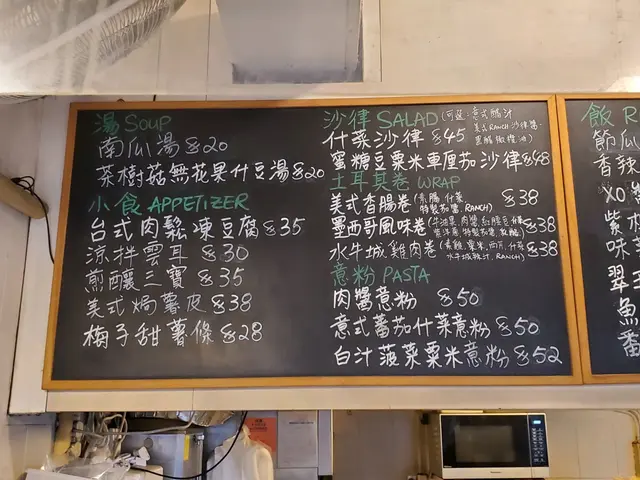 湯 SOUP
南瓜湯 $20
茶樹菇無花果什豆湯 $20
小食 APPETIZER
台式肉鬆凍豆腐 $35
涼拌雲耳 $30
煎釀三寶 $35
美式焗薯皮 $38
梅子甜薯條 $28
沙律 SALAD (可選: 意式醋汁
美式RANCH沙律醬
黑醋橄欖油)
什菜沙律 $45
蜜糖豆粟米車厘茄沙律 $48
土耳其卷 WRAP
美式香腸卷 (素腸, 什菜
特製茄醬, RANCH) $38
墨西哥風味卷 $38
水牛城雞肉卷 (素雞, 粟米, 西芹, 什菜
水牛城辣汁, RANCH) $38
意粉 PASTA
肉醬意粉 $50
意式蕃茄什菜意粉 $50
白汁菠菜粟米意粉 $52
飯 R
節瓜
香辣
XO
紫
味
翠
魚
番